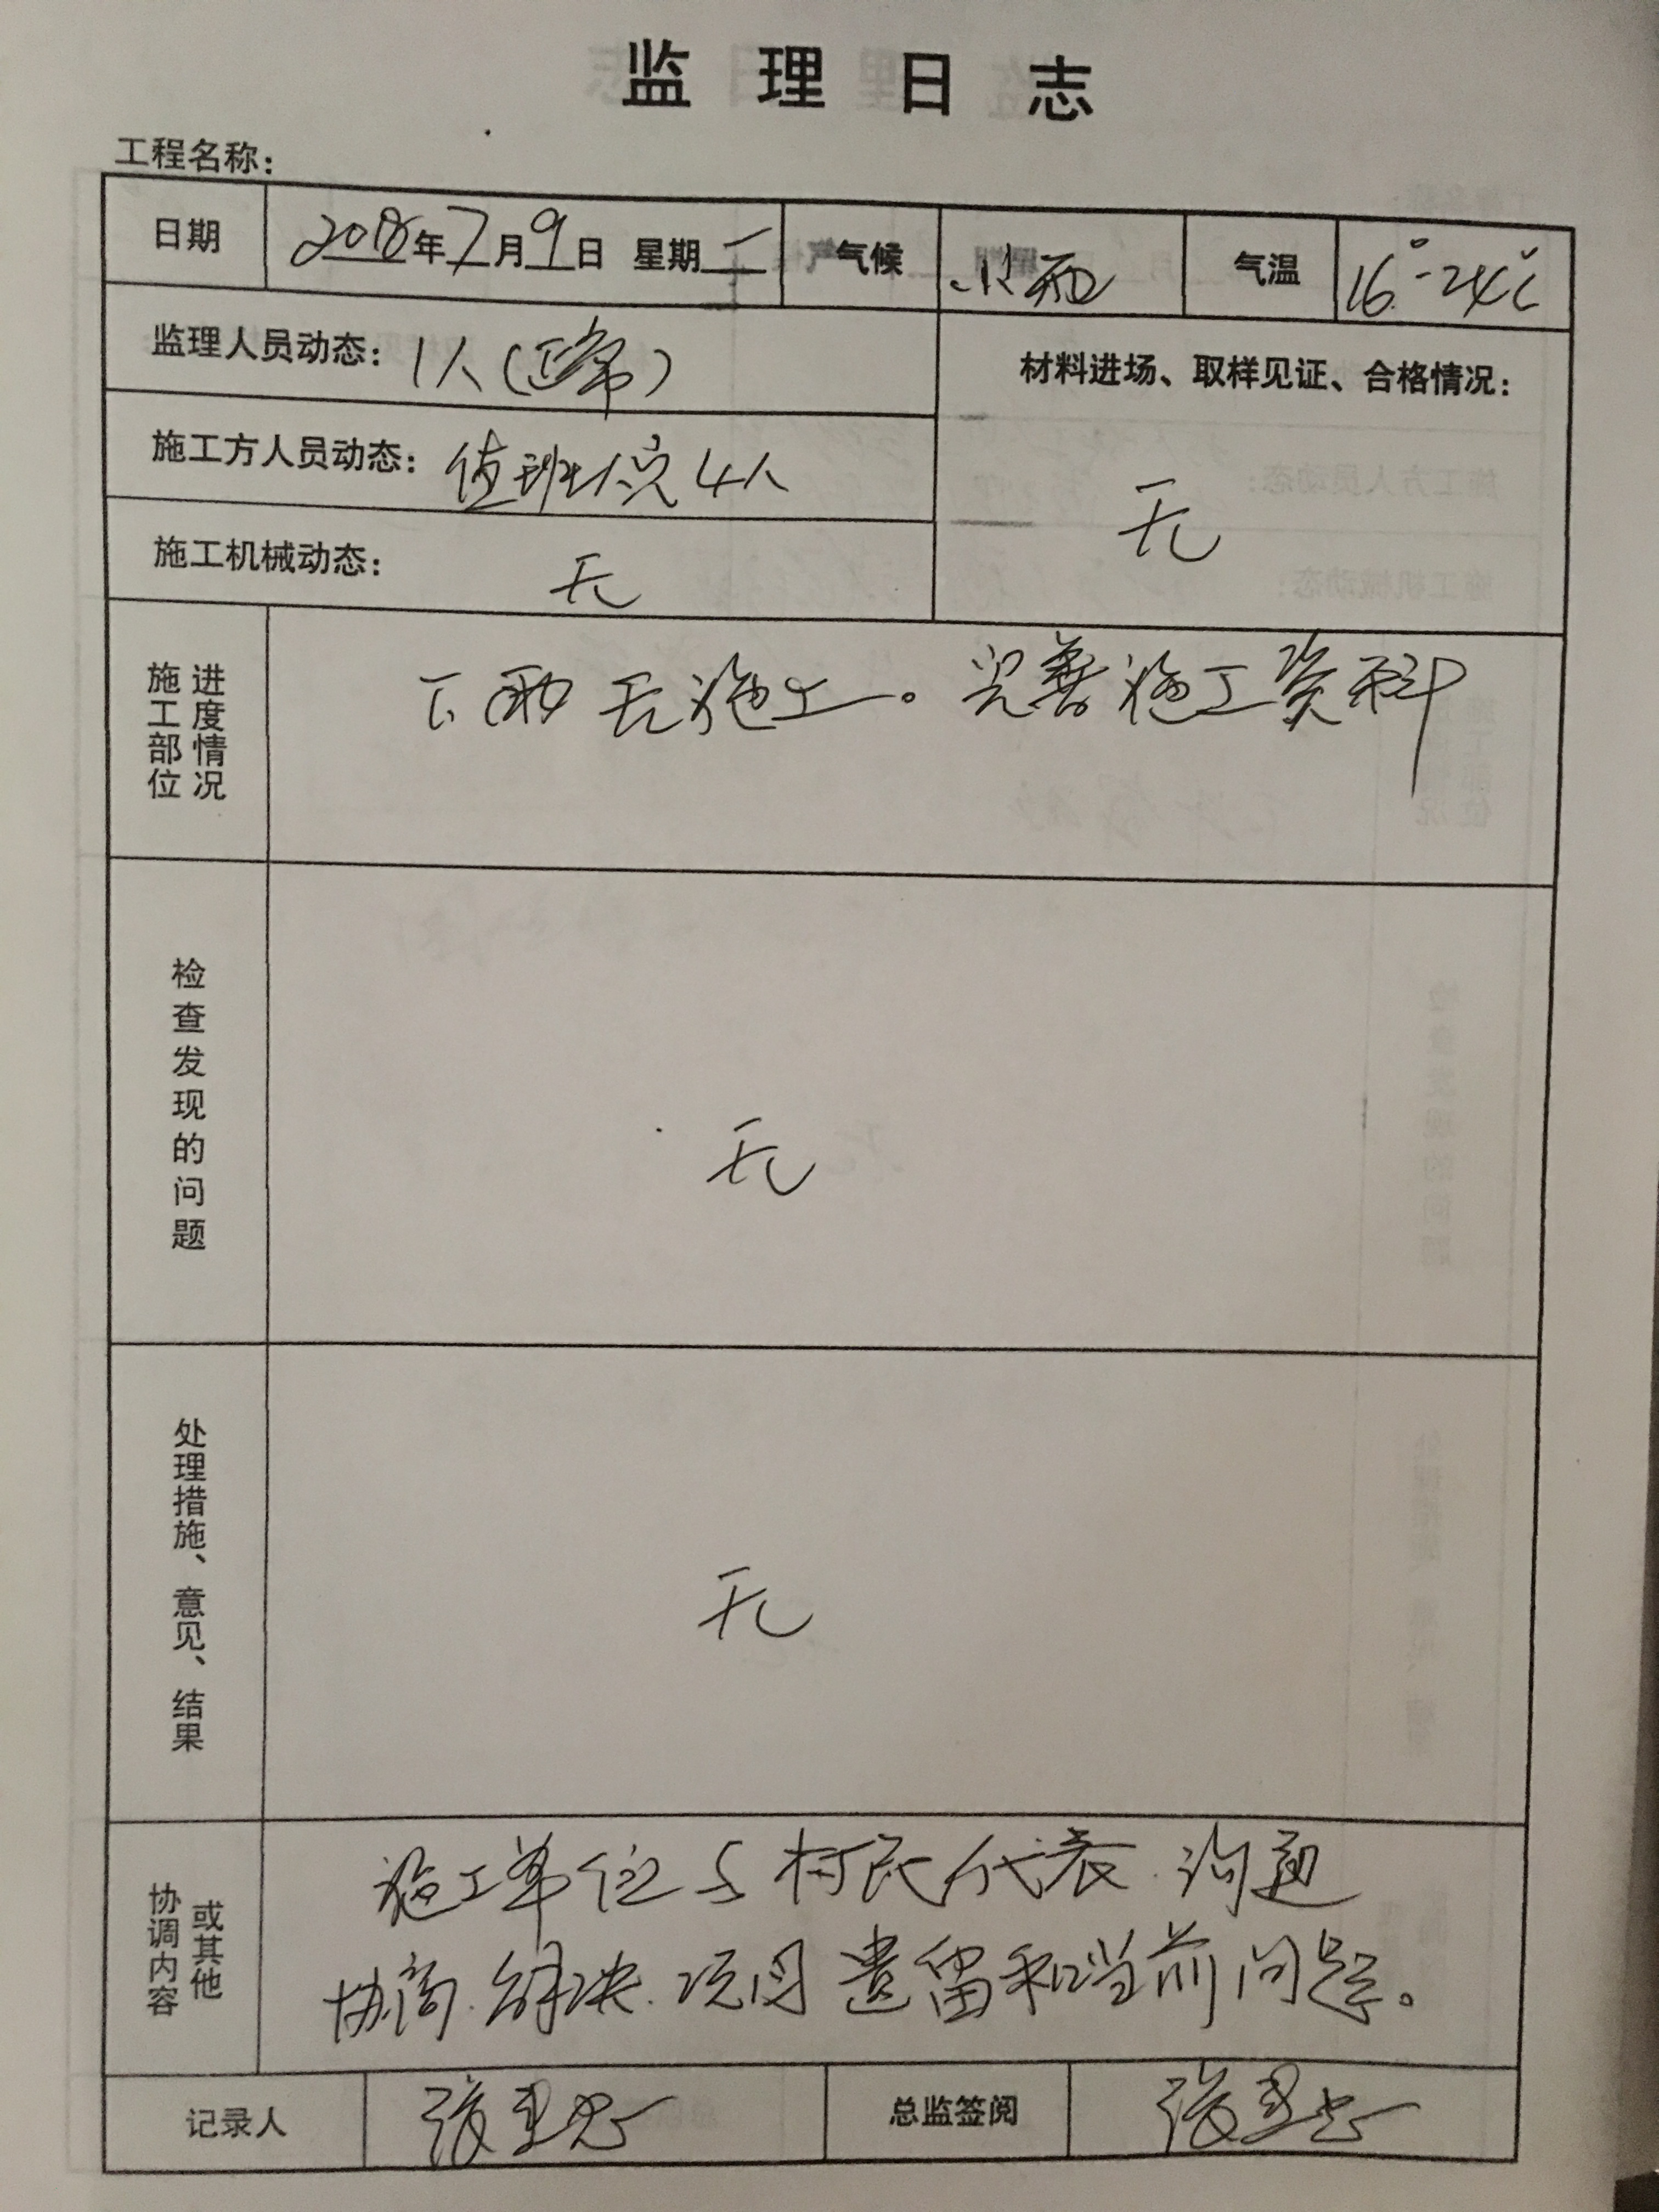 监理日志
工程名称：
日期 2018年7月9日 星期一 气候 小雨 气温 16°-24℃
监理人员动态：1人（正常）
材料进场、取样见证、合格情况：
施工方人员动态：值班人员4人
无
施工机械动态：无
施工部位进度情况
下雨无施工。完善施工资料
检查发现的问题
无
处理措施、意见、结果
无
协调内容或其他
施工单位与村民代表沟通
协商解决项目遗留和当前问题。
记录人 张 总监签阅 张